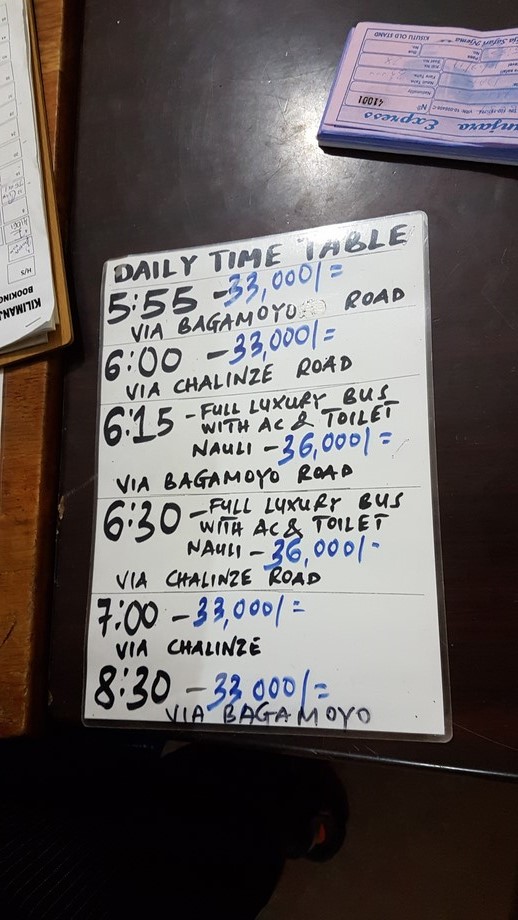 DAILY TIME TABLE
5:55 - 33,000/=
VIA BAGAMOYO ROAD
6:00 - 33,000/=
VIA CHALINZE ROAD
6:15 - FULL LUXURY BUS
WITH AC & TOILET
NAULI - 36,000/=
VIA BAGAMOYO ROAD
6:30 - FULL LUXURY BUS
WITH AC & TOILET
NAULI - 36,000/-
VIA CHALINZE ROAD
7:00 - 33,000/=
VIA CHALINZE
8:30 - 33 000/=
VIA BAGAMOYO
KISUTU OLD STAND
Express
Nº
41001
KILIMANJ
BOOKING
H/S